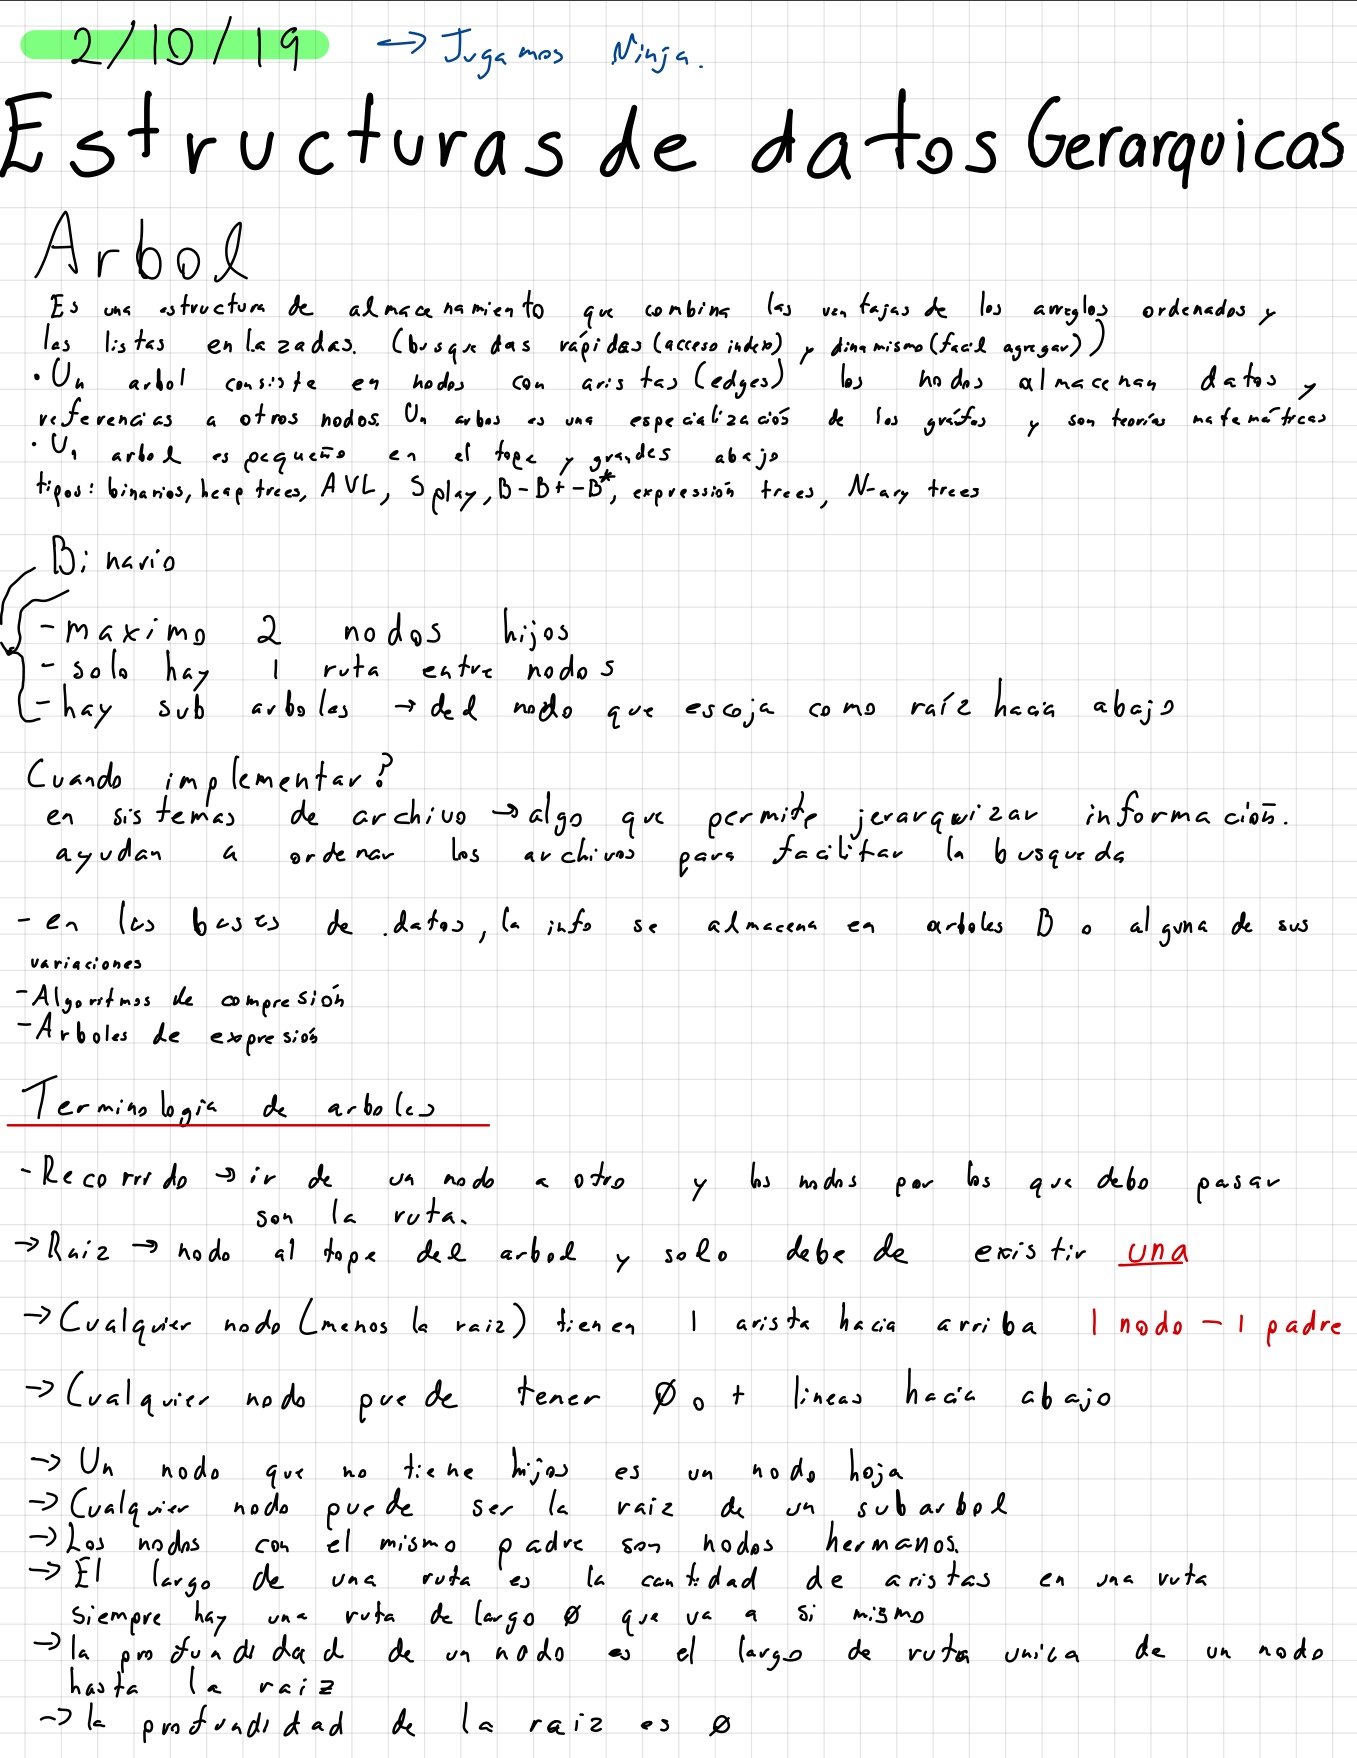 2/10/19 ↔ Jugamos Ninja.
Estructuras de datos Gerarquicas
Arbol
Es una estructura de almacenamiento que combina las ventajas de los arreglos ordenados y
las listas enlazadas. (busquedas rápidas (acceso index) y dinamismo (facil agregar))
• Un arbol consiste en nodos con aristas (edges) los nodos almacenan datos y
referencias a otros nodos. Un arbos es una especialización de los gráfos y son teorías matemáticas
• Un arbol es pequeño en el tope y grandes abajo
tipos: binarios, heap trees, AVL, Splay, B-B+-B*, expressión trees, N-ary trees
Binario
- maximo 2 nodos hijos
- solo hay 1 ruta entre nodos
- hay sub arboles → del nodo que escoja como raíz hacia abajo
Cuando implementar?
en sistemas de archivo → algo que permite jerarquizar información.
ayudan a ordenar los archivos para facilitar la busqueda
- en las bases de datos, la info se almacena en arboles B o alguna de sus
variaciones
- Algoritmos de compresión
- Arboles de expresión
Terminologia de arboles
- Recorrido → ir de un nodo a otro y los nodos por los que debo pasar
son la ruta.
→ Raiz → nodo al tope del arbol y solo debe de existir una
→ Cualquier nodo (menos la raiz) tienen 1 arista hacia arriba 1 nodo - 1 padre
→ Cualquier nodo puede tener Ø o + lineas hacia abajo
→ Un nodo que no tiene hijos es un nodo hoja
→ Cualquier nodo puede ser la raiz de un subarbol
→ Los nodos con el mismo padre son nodos hermanos.
→ El largo de una ruta es la cantidad de aristas en una ruta
siempre hay una ruta de largo Ø que va a si mismo
→ la profundidad de un nodo es el largo de ruta unica de un nodo
hasta la raiz
→ la profundidad de la raiz es Ø